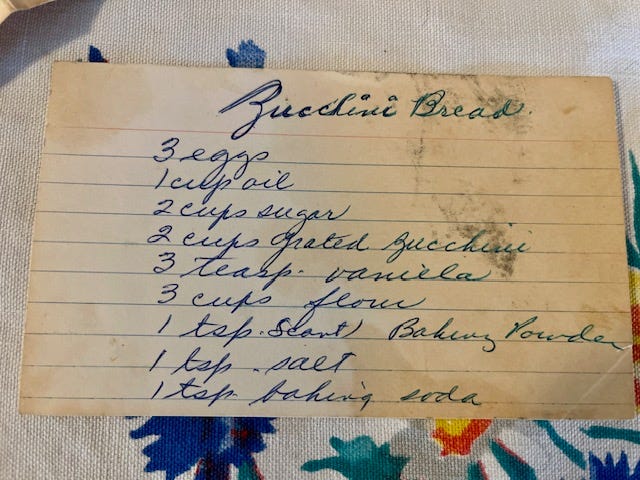 Zucchini Bread.
3 eggs
1 cup oil
2 cups sugar
2 cups grated zucchini
3 teasp. vanilla
3 cups flour
1 tsp. Scant) Baking Powder
1 tsp. salt
1 tsp. baking soda